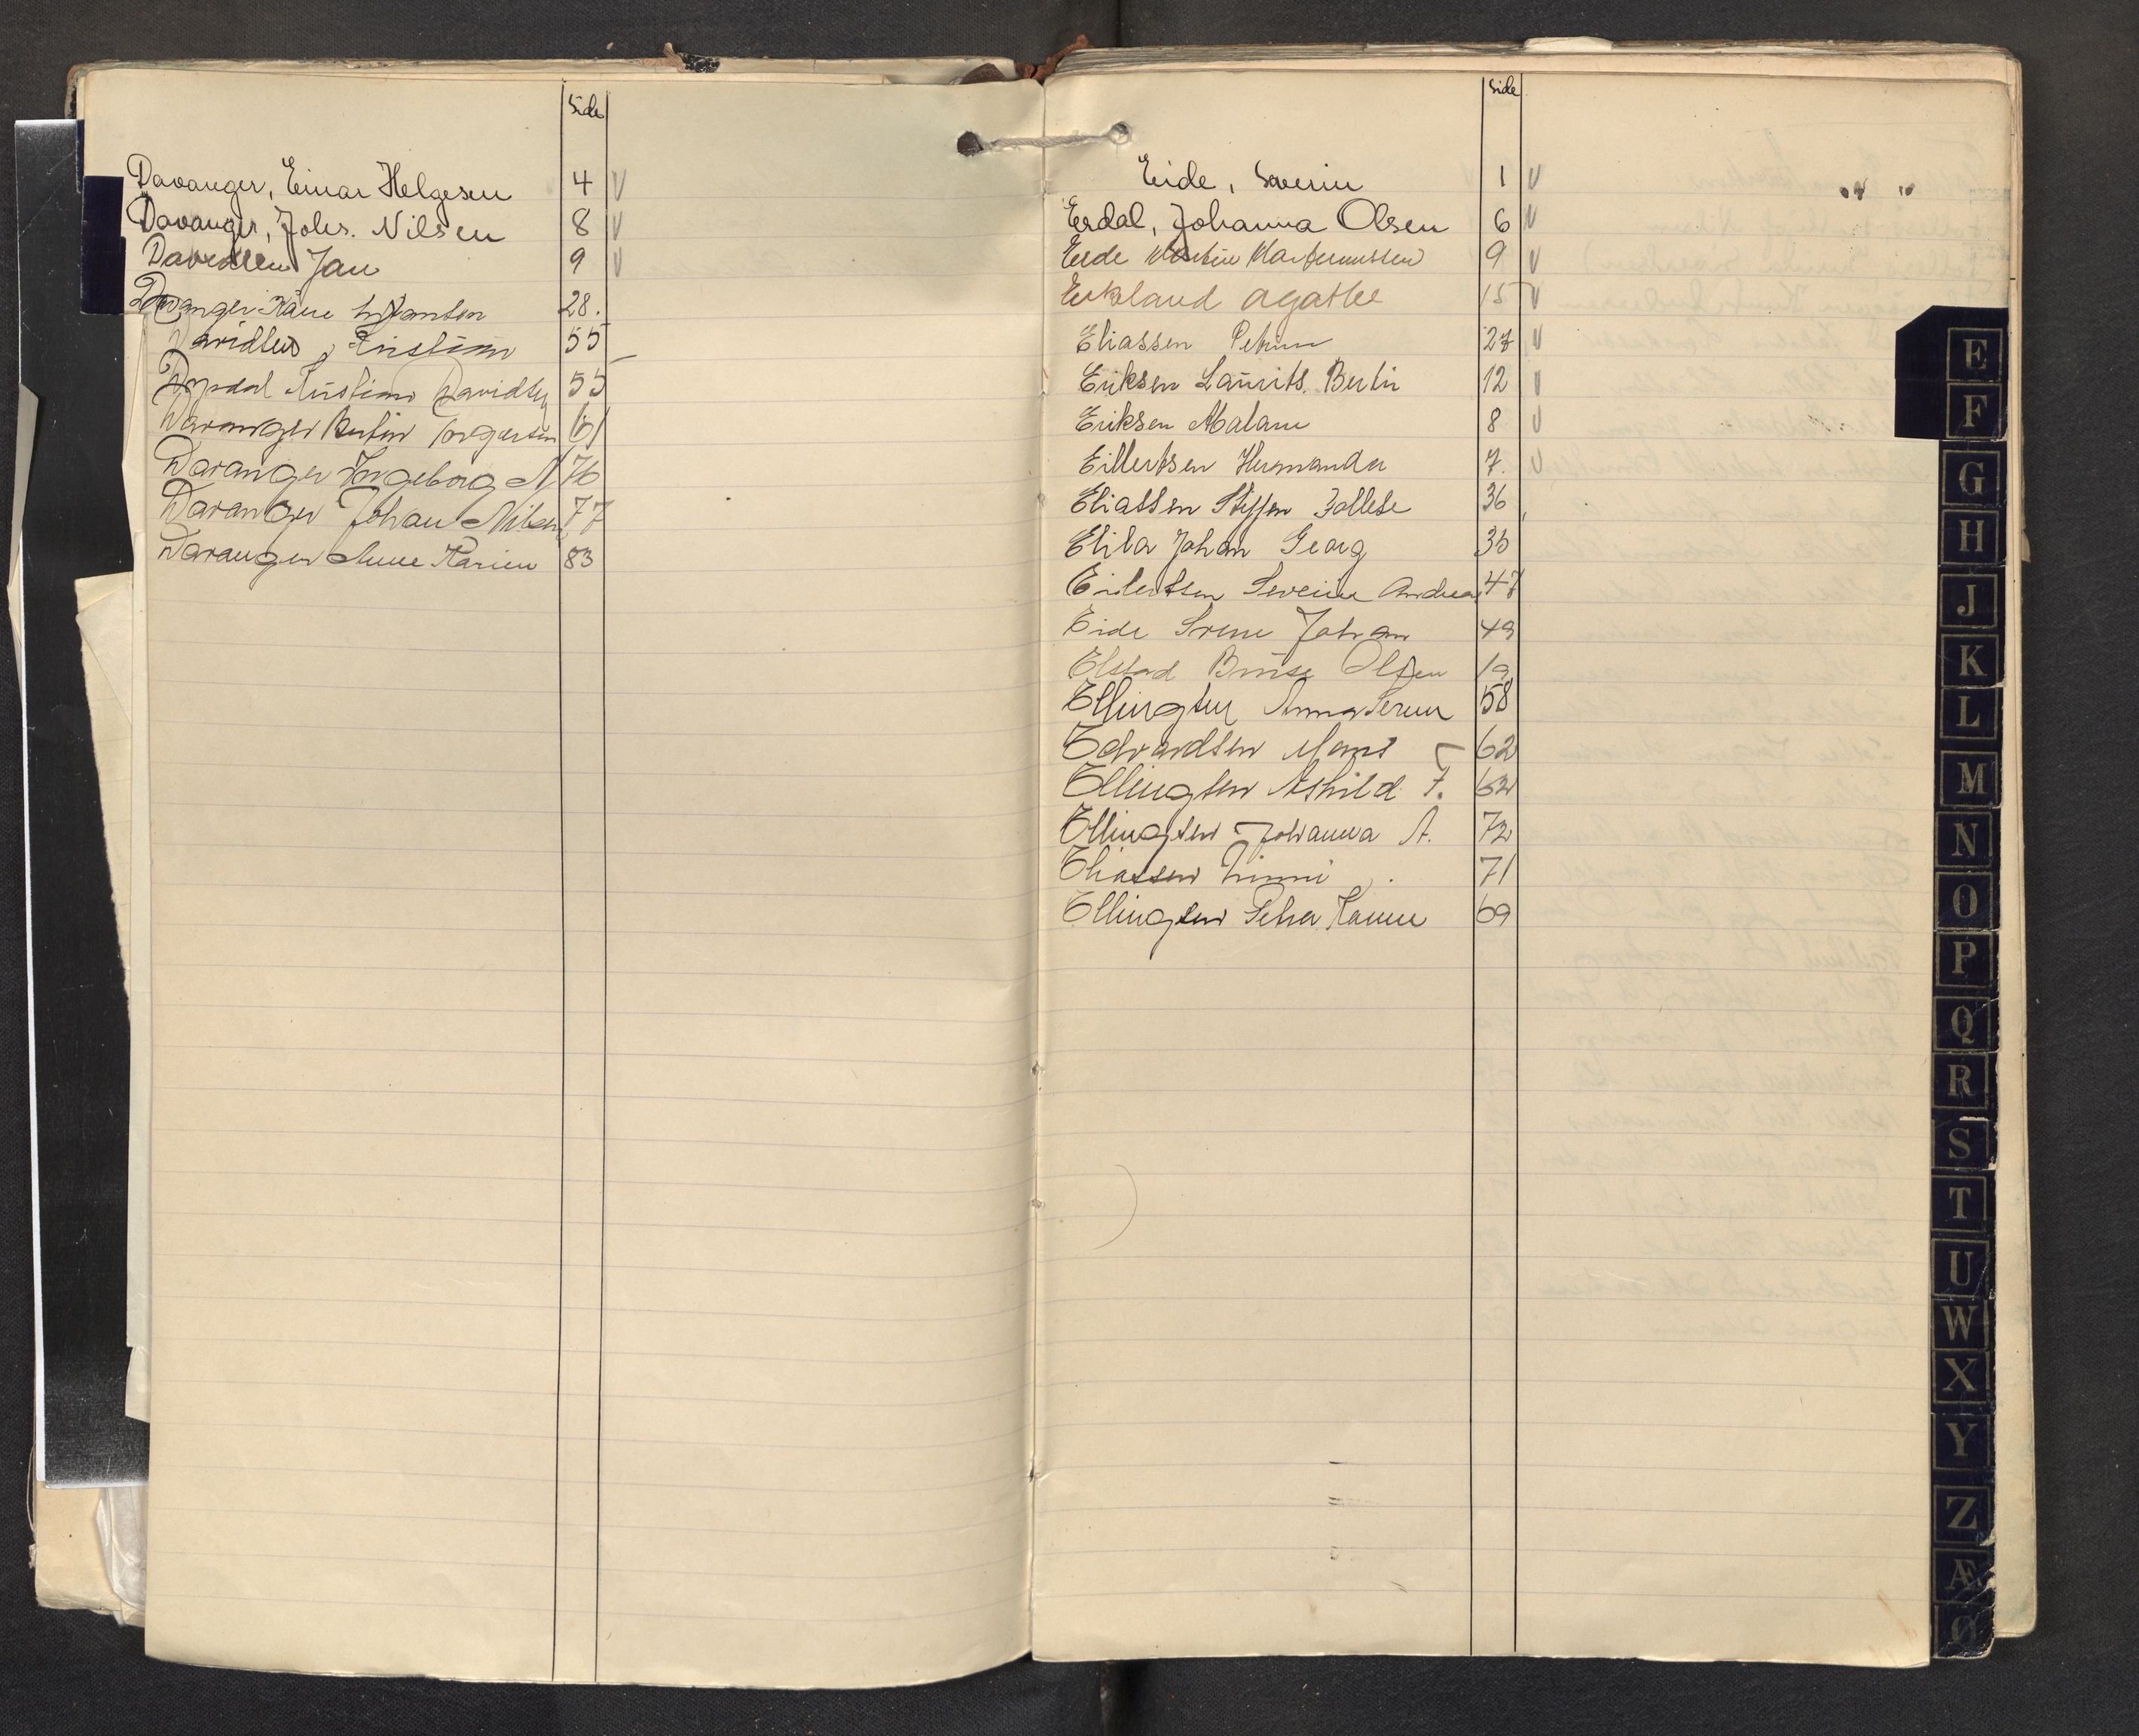 Side
Davanger, Einar Helgesen 4 V
Davanger, Johs. Nilsen 8 V
Davidsen Jan 9 V
Davanger Kåre 28.
Davidsen, Kristian 55
Kristian Davidsen 55
Davanger Bertin Torgersen 61
Davanger Ingeborg N 76
Davanger Johan Nilsen 77
Davanger Anne Karine 83
Side
Eide, Severin 1 V
Erdal, Johanna Olsen 6 V
Eide Martin 9 V
Eikeland Agathe 15 V
Eliassen Petrine 27 V
Eriksen Laurits Bertin 12 V
Eriksen Malane 8 V
Eillertsen Hermanda 7. V
Eliassen Steffen Follese 36
Johan Georg
Eilertsen Severine Andrea 47
Eide Johan 49
Elstad Olsen 19
Ellingsen 58
Edvardsen Mons 62
Ellingsen Åshild F. 62
Ellingsen Johanna A. 72
Eliassen Linni 71
Ellingsen Petra Hanne 69
E
F
G
H
J
K
L
M
N
O
P
Q
R
S
T
U
W
X
Y
Z
Æ
Ø